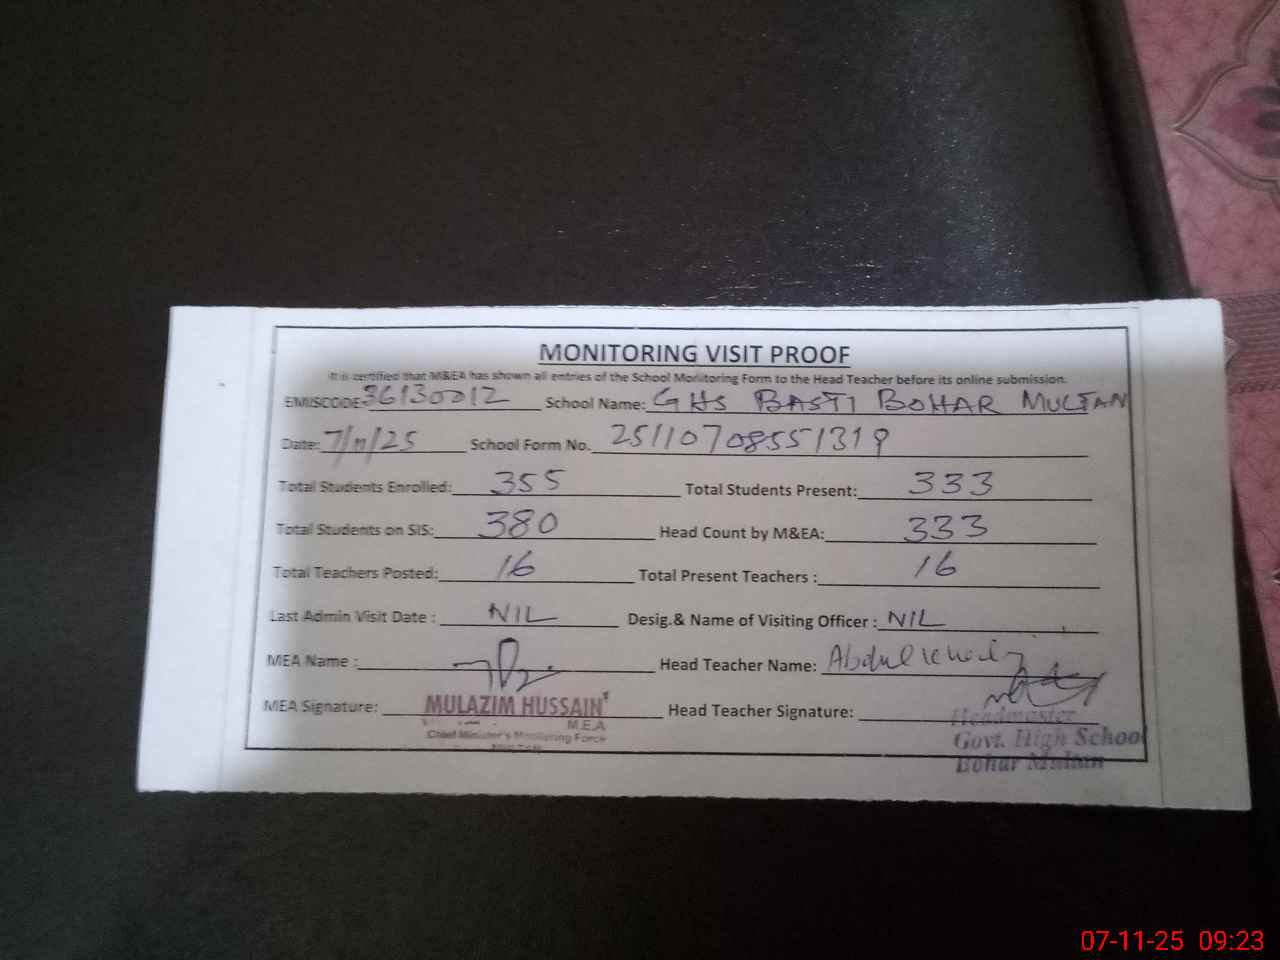 MONITORING VISIT PROOF
It is certified that M&EA has shown all entries of the School Monitoring Form to the Head Teacher before its online submission.
EMISCODE: 36130012 School Name: GHS BASTI BOHAR MULTAN
Date: 7/11/25 School Form No. 25110708551319
Total Students Enrolled: 355 Total Students Present: 333
Total Students on SIS: 380 Head Count by M&EA: 333
Total Teachers Posted: 16 Total Present Teachers : 16
Last Admin Visit Date : NIL Desig.& Name of Visiting Officer : NIL
MEA Name : Head Teacher Name: Abdul
MEA Signature: Head Teacher Signature:
MULAZIM HUSSAIN
M.E.A
Chief Minister's Monitoring Force
Headmaster
Govt. High School
Bohar Multan
07-11-25 09:23